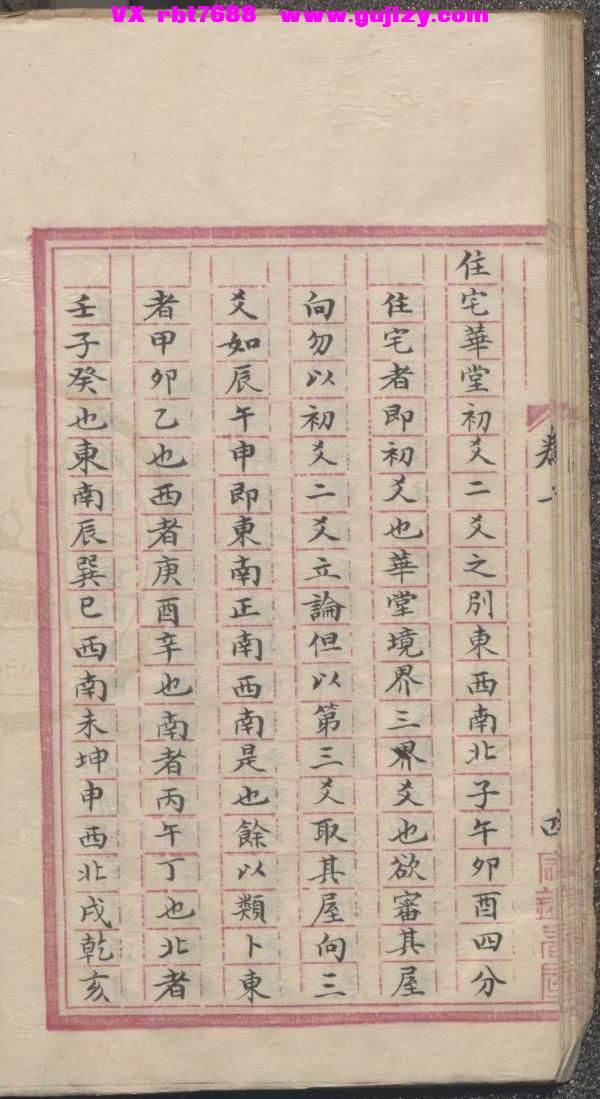 VX rbt7688 www.gujizy.com
住宅華堂初爻二爻之別東西南北子午卯酉四分
住宅者即初爻也華堂境界三界爻也欲審其屋
向勿以初爻二爻立論但以第三爻取其屋向三
爻如辰午申即東南正南西南是也餘以類卜東
者甲卯乙也西者庚酉辛也南者丙午丁也北者
壬子癸也東南辰巽巳西南未坤申西北戌乾亥